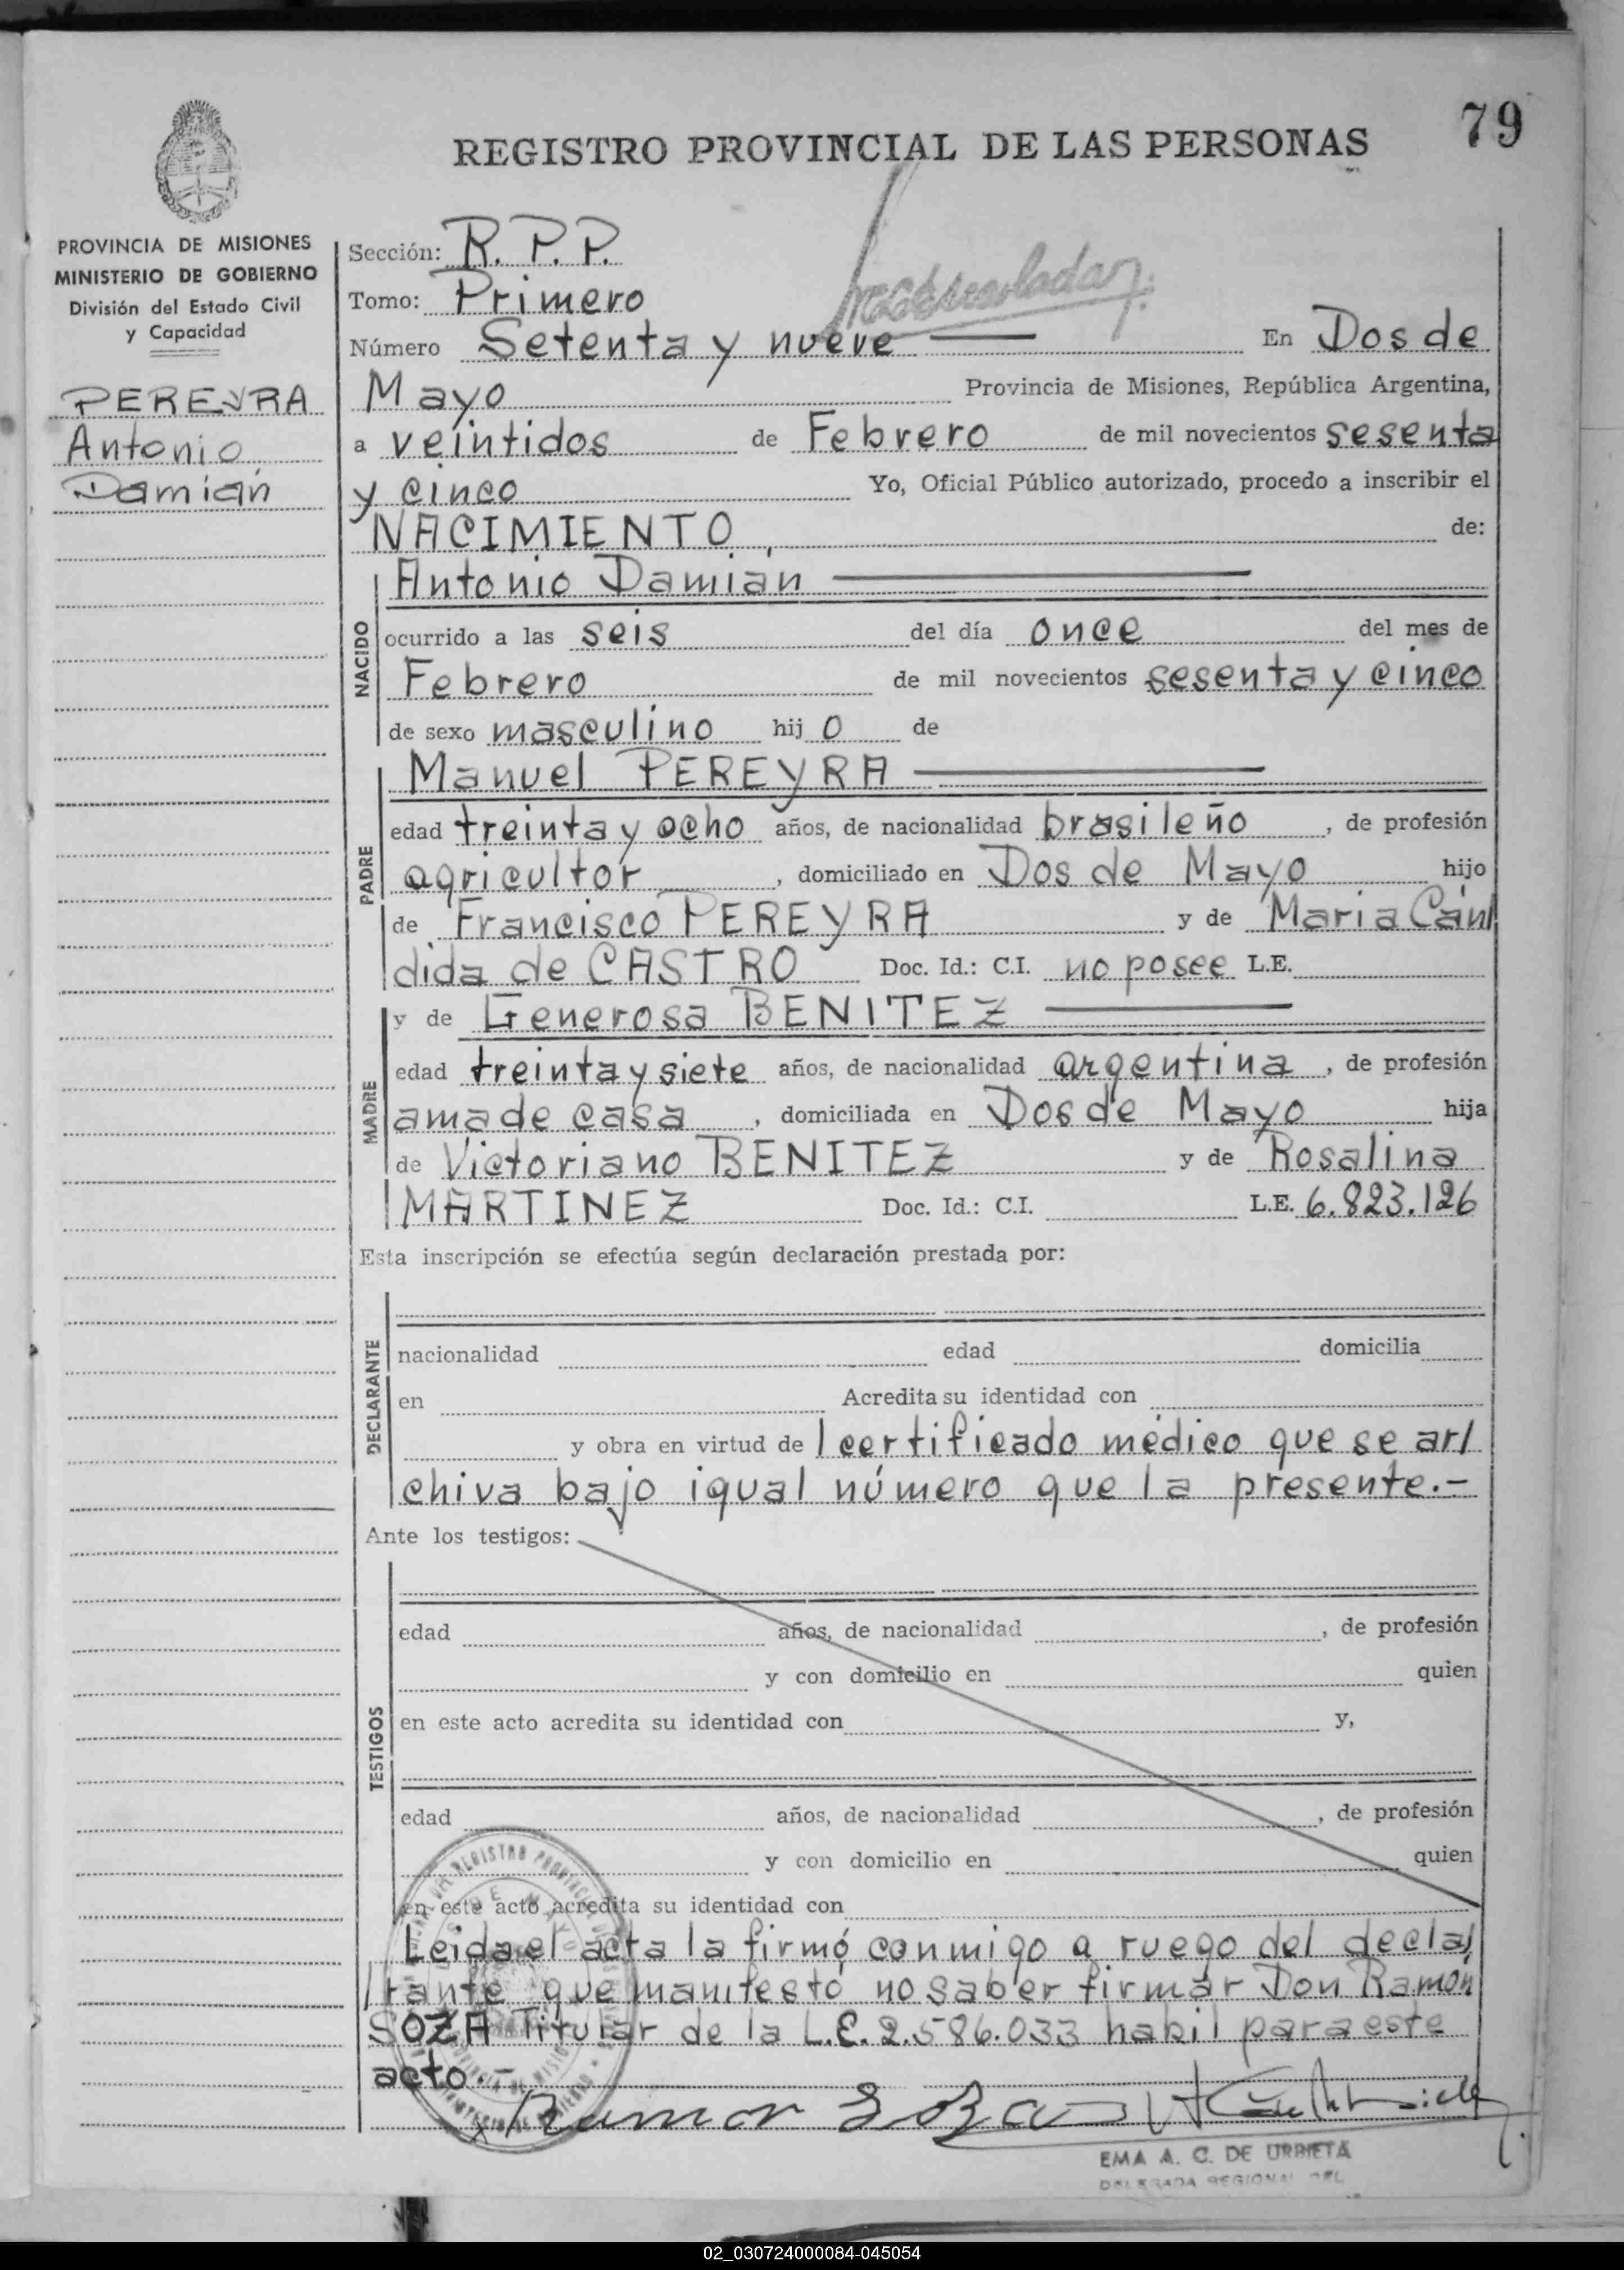 79
REGISTRO PROVINCIAL DE LAS PERSONAS
PROVINCIA DE MISIONES
MINISTERIO DE GOBIERNO
División del Estado Civil
y Capacidad
PEREYRA
Antonio
Damian
Sección: R. P. P.
Tomo: Primero
Número Setenta y nueve En Dos de
Mayo Provincia de Misiones, República Argentina,
a veintidos de Febrero de mil novecientos sesenta
y cinco Yo, Oficial Público autorizado, procedo a inscribir el
NACIMIENTO de:
NACIDO
Antonio Damian
ocurrido a las seis del día once del mes de
Febrero de mil novecientos sesenta y cinco
de sexo masculino hij o de
PADRE
Manuel PEREYRA
edad treinta y ocho años, de nacionalidad brasileño, de profesión
agricultor, domiciliado en Dos de Mayo hijo
de Francisco PEREYRA y de Maria Cán/
dida de CASTRO Doc. Id.: C.I. no posee L.E.
MADRE
y de Generosa BENITEZ
edad treinta y siete años, de nacionalidad argentina, de profesión
ama de casa, domiciliada en Dos de Mayo hija
de Victoriano BENITEZ y de Rosalina
MARTINEZ Doc. Id.: C.I. L.E. 6.823.126
Esta inscripción se efectúa según declaración prestada por:
DECLARANTE
nacionalidad edad domicilia
en Acredita su identidad con
y obra en virtud de l certificado médico que se ar/
chiva bajo igual número que la presente.-
Ante los testigos:
TESTIGOS
edad años, de nacionalidad , de profesión
y con domicilio en quien
en este acto acredita su identidad con y,
edad años, de nacionalidad , de profesión
y con domicilio en quien
en este acto acredita su identidad con
Leida el acta la firmó conmigo a ruego del decla/
rante que manifestó no saber firmar Don Ramón
SOZA Titular de la L.E. 2.586.033 habil para este
acto.-
Ramon Soza
EMA A. C. DE URBIETA
DELEGADA REGIONAL DEL
02_030724000084-045054